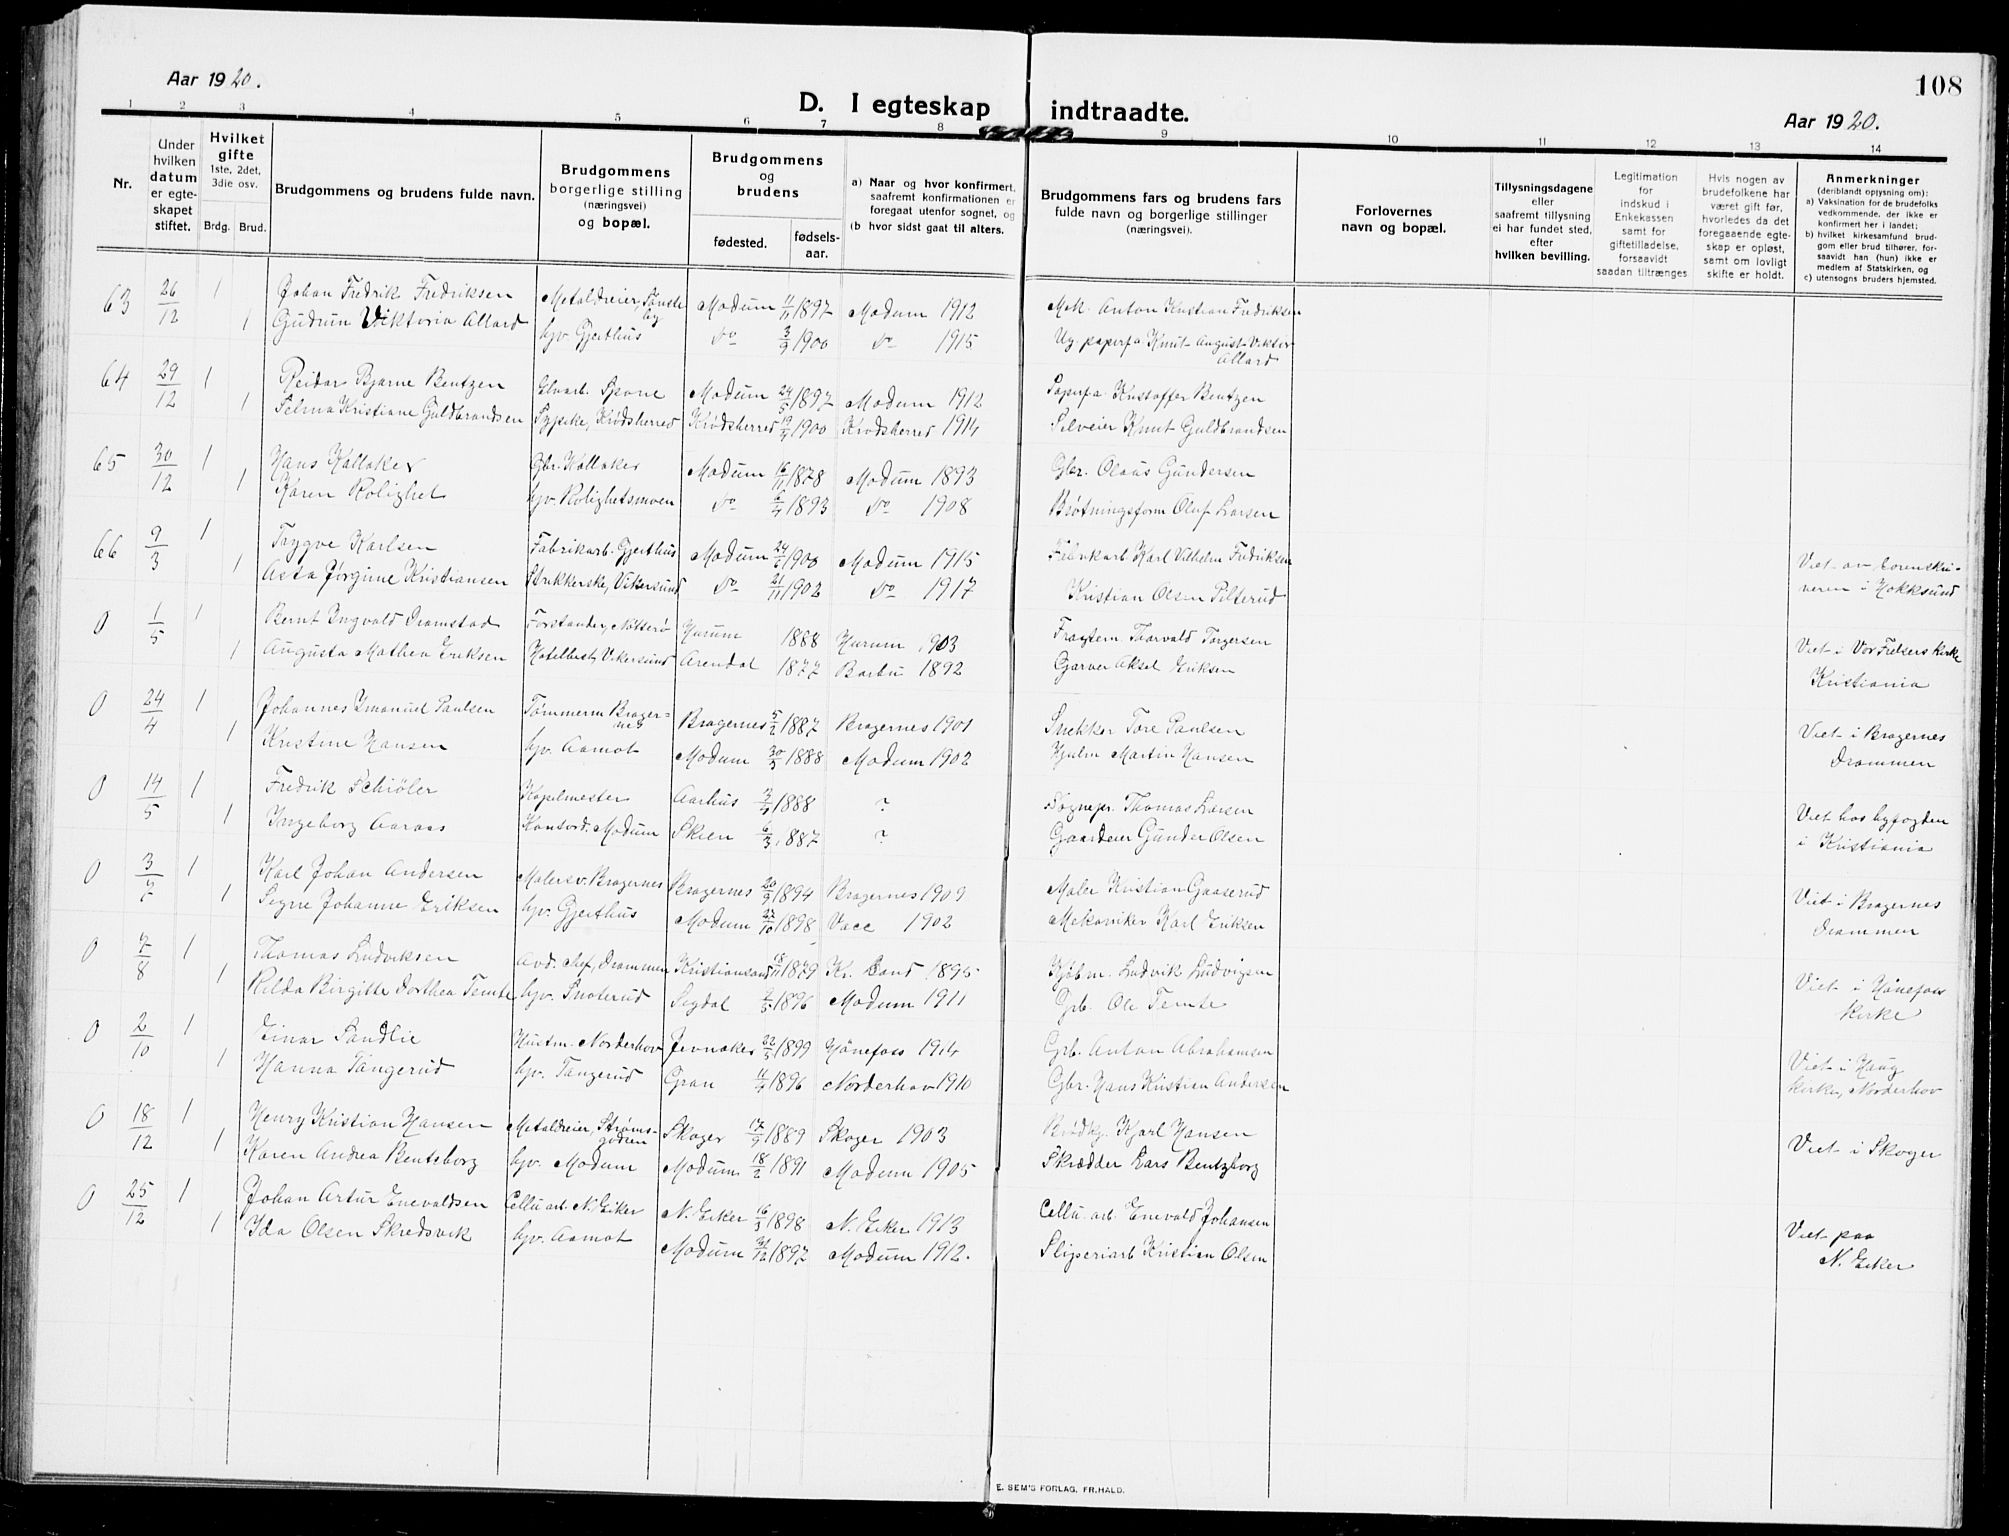 Aar 1920.
108
D. I egteskap indtraadte.
Aar 1920.
1 2 3 4 5 6 7 8 9 10 11 12 13 14
Nr.
Under hvilken datum er egteskapet stiftet.
Hvilket gifte 1ste, 2det, 3die osv.
Brdg. Brud.
Brudgommens og brudens fulde navn.
Brudgommens borgerlige stilling (næringsvei) og bopæl.
Brudgommens og brudens
fødested. fødselsaar.
a) Naar og hvor konfirmert, saafremt konfirmationen er foregaat utenfor sognet, og
(b hvor sidst gaat til alters.
Brudgommens fars og brudens fars fulde navn og borgerlige stillinger (næringsvei).
Forlovernes navn og bopæl.
Tillysningsdagene eller saafremt tillysning ei har fundet sted, efter hvilken bevilling.
Legitimation for indskud i Enkekassen samt for giftetilladelse, forsaavidt saadan tiltrænges
Hvis nogen av brudefolkene har været gift før, hvorledes da det foregaaende egteskap er opløst, samt om lovligt skifte er holdt.
Anmerkninger (deriblandt oplysning om):
a) Vaksination for de brudefolks vedkommende, der ikke er konfirmert her i landet;
b) hvilket kirkesamfund brudgom eller brud tilhører, forsaavidt han (hun) ikke er medlem af Statskirken, og
c) utensogns bruders hjemsted.
63 26/12 1 Johan Fredrik Fredriksen Metaldreier, Tønsberg Modum 11/11 1897 Modum 1912 Mek. Anton Kristian Fredriksen
1 Gudrun Viktoria Allard hjv. Gjerthus do 3/9 1900 do 1915 Ug. paperfa. Knut August Viktor Allard
64 29/12 1 Reidar Bjarne Bentzen Glvarb. Spone Modum 24/5 1897 Modum 1912 Paperfa. Kristoffer Bentzen
1 Selma Kristiane Guldbrandsen Sypike, Krødsherred Krødsherred 19/4 1900 Krødsherred 1914 Selveier Knut Guldbrandsen
65 30/12 1 Hans Kolloker Gbr. Kolloker Modum 16/11 1878 Modum 1893 Gbr. Olaus Gundersen
1 Karen Rolighet hjv. Rolighetsmoen do 6/4 1893 do 1908 Brøtningsform Oluf Larsen
66 9/3 1 Trygve Karlsen Fabrikarb. Gjerthus Modum 1900 Modum 1915 Fabrikarb Karl Vilhelm Fredriksen Viet av Sorenskriveren i Hokksund
1 Asta Jørgine Kristiansen Strikkerske, Vikersund do 21/11 1902 do 1917 Kristian Olsen Pilterud
0 1/5 1 Bernt Ingvald Dramstad Forstander, Nøtterø Hurum 1888 Hurum 1903 Fragtem. Thorvald Torgersen Viet i Vor Frelsers kirke Kristiania
1 Augusta Mathea Eriksen Hotelbest, Vikersund Arendal 1877 Barbu 1892 Garver Aksel Eriksen
0 24/4 1 Johannes Imanuel Paulsen Tømmerm Bragernes Bragernes 5/2 1887 Bragernes 1901 Snekker Tore Paulsen Viet i Bragernes Drammen
1 Kristine Hansen hjv. Aamot Modum 30/3 1888 Modum 1902 Hjulm Martin Hansen
0 14/5 1 Fredrik Schiøler Kapelmester Aarhus 3/4 1888 ? Sognepr. Thomas Larsen Viet hos byfogden i Kristiania
1 Ingeborg Aaraas Kontord. Modum Skien 6/3 1887 ? Gaardeier Gunder Olsen
0 3/7 1 Karl Johan Andersen Malersv. Bragernes Bragernes 20/9 1894 Bragernes 1909 Maler Kristian Gaaserud Viet i Bragernes Drammen
1 Signe Johanne Eriksen hjv. Gjerthus Modum 27/10 1898 Vacc 1902 Mekaniker Karl Eriksen
0 7/8 1 Thomas Ludviksen Avd. chef, Drammen Kristiansand 18/11 1879 Kr. Sand 1895 Kjøbm. Ludvik Ludvigsen Viet i Hønefoss kirke
1 Rilda Birgitte Dorthea Temte hjv. Snoterud Sigdal 2/5 1896 Modum 1911 Grb. Ole Temte
0 2/10 1 Einar Sandlie Hustm. Norderhov Jevnaker 22/5 1899 Hønefoss 1914 Grb. Anton Abrahamsen Viet i Haug kirke, Norderhov
1 Hanna Tangerud hjv. Tangerud Gran 11/4 1896 Norderhov 1910 Gbr. Hans Kristian Andersen
0 18/12 1 Henry Kristian Hansen Metaldreier, Strømsgodsen Skoger 17/9 1889 Skoger 1903 Brødkj. Kjarl Hansen Viet i Skoger
1 Karen Andrea Bentsborg hjv. Modum Modum 18/2 1891 Modum 1905 Skrædder Lars Bentzborg
0 25/12 1 Johan Artur Enevaldsen Cellu. arb. N. Eiker N. Eiker 16/3 1898 N. Eiker 1913 Cellu. arb. Enevald Johansen Viet paa N. Eiker
1 Ida Olsen Skredsvik hjv. Aamot Modum 31/12 1897 Modum 1912. Sliperiarb Kristian Olsen
E. SEM'S FORLAG, FR.HALD.